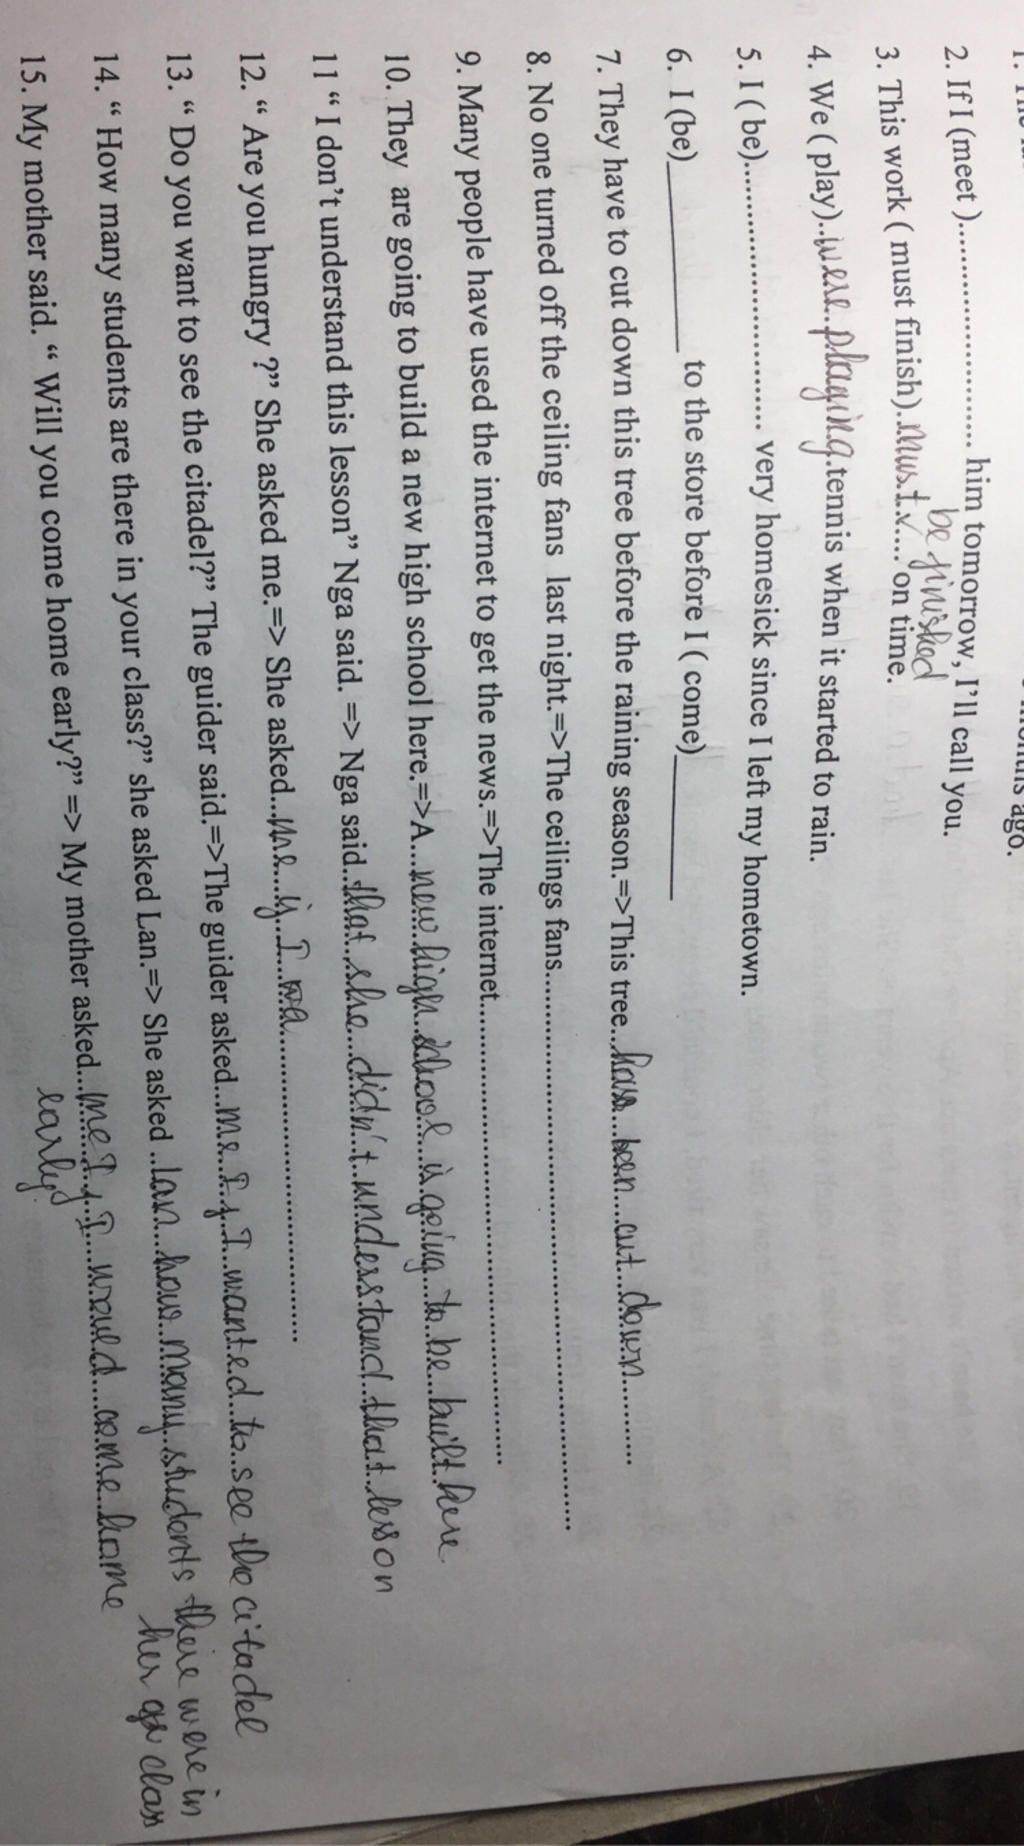 months ago.
2. If I (meet )........................ him tomorrow, I'll call you.
be finished
3. This work ( must finish)..must.... on time.
4. We ( play)..were playing.tennis when it started to rain.
5. I ( be)........................ very homesick since I left my hometown.
6. I (be)____________ to the store before I ( come)__________
7. They have to cut down this tree before the raining season.=>This tree..has been cut down..........
8. No one turned off the ceiling fans last night.=>The ceilings fans............................................................
9. Many people have used the internet to get the news.=>The internet..................................................
10. They are going to build a new high school here.=>A...new high school is going to be built here
11 “ I don’t understand this lesson” Nga said. => Nga said..that she didn't understand that lesson
12. “ Are you hungry ?” She asked me.=> She asked...me if I ..............................
13. “ Do you want to see the citadel?” The guider said.=>The guider asked...me if I wanted to see the citadel
14. “ How many students are there in your class?” she asked Lan.=> She asked ..lan how many students there were in
her class
15. My mother said. “ Will you come home early?” => My mother asked...me if I would come home
early.